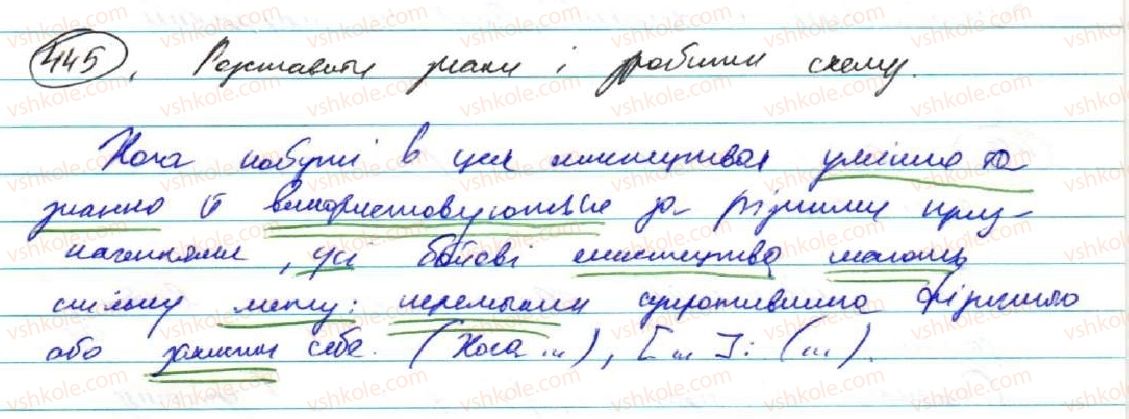 445. Розставити знаки і зробити схему.
Хоча набуті в цих мистецтвах уміння та
знання й використовуються за різними приз-
наченнями, усі бойові мистецтва мають
спільну мету: перемогти супротивника фізично
або захистити себе. (Хоча ...), [... ]: (...).